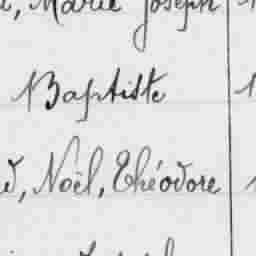 , Marie Joseph
Baptiste
d, Noël, Théodore